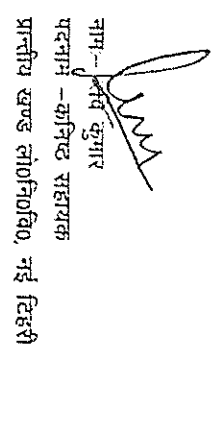 नाम:- कुमार
पदनाम -कनिष्ठ सहायक
प्रान्तीय खण्ड लो०नि०वि०, नई टिहरी